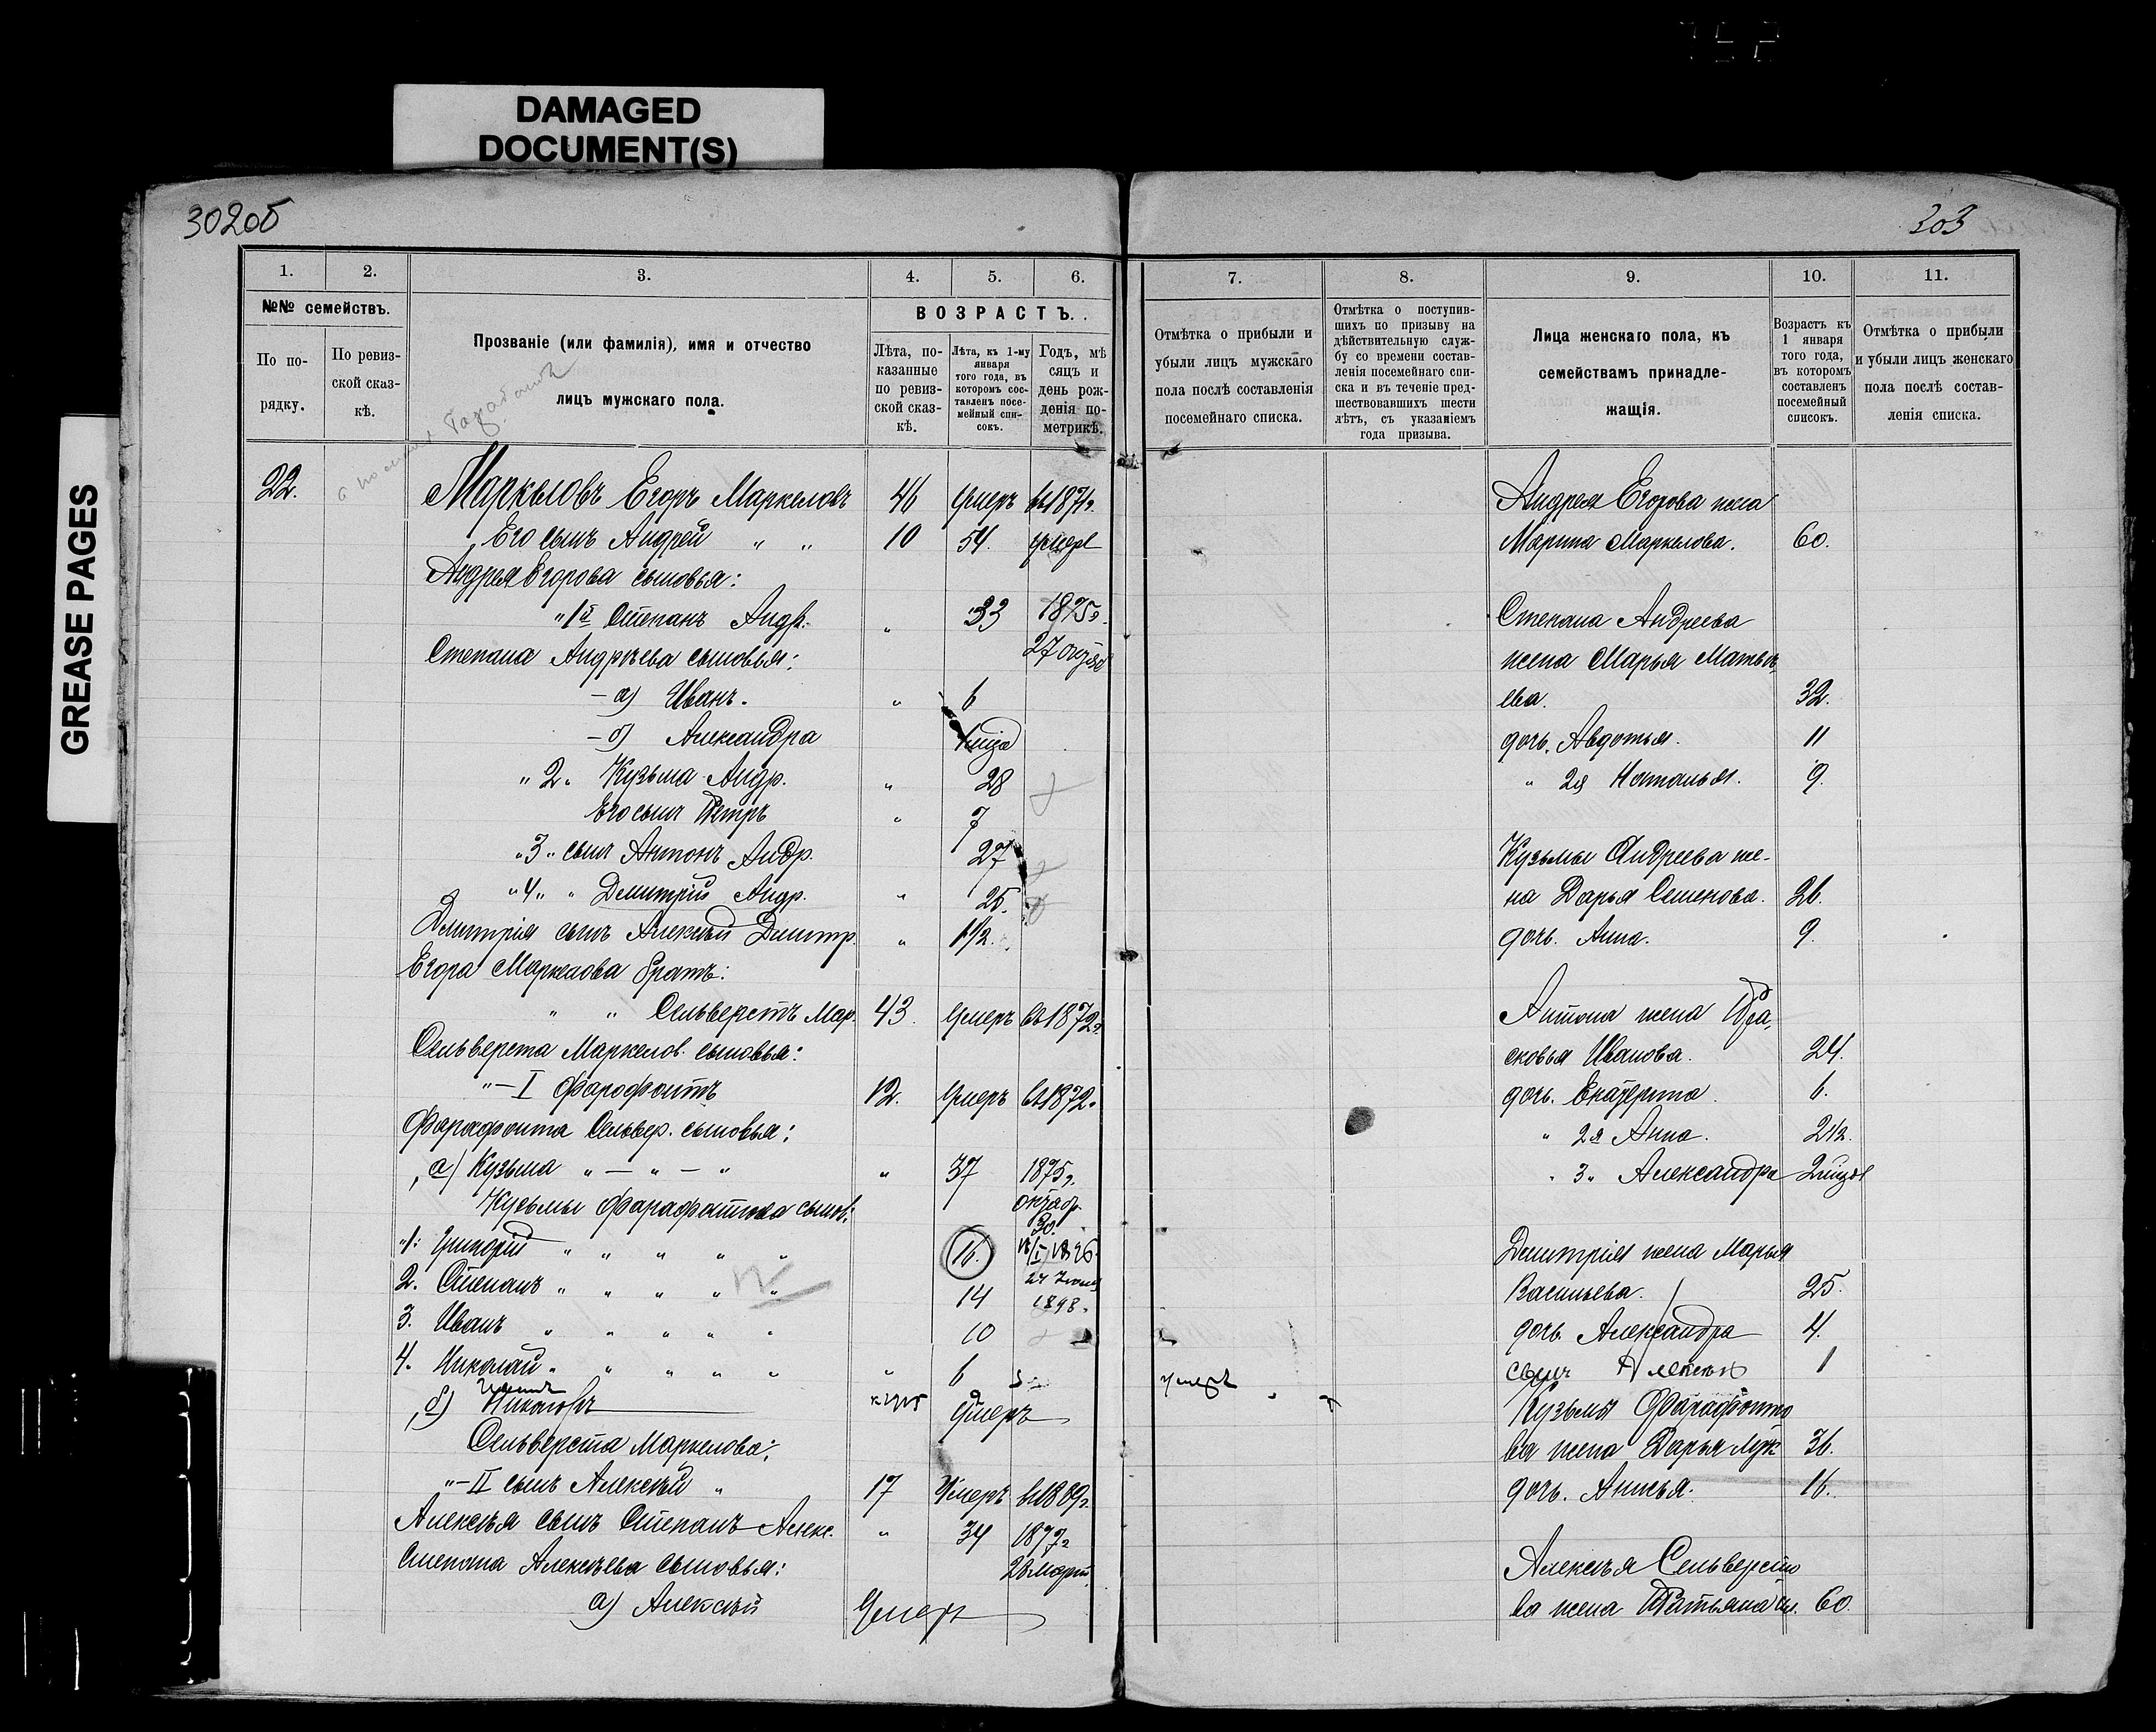 DAMAGED
DOCUMENT(S)
GREASE PAGES
302об
303
1. 2. 3. 4. 5. 6.
№№ семействъ.
По по-
рядку.
По ревиз-
ской сказ-
кѣ.
Прозваніе (или фамилія), имя и отчество
лицъ мужскаго пола.
ВОЗРАСТЪ.
Лѣта, по-
казанные
по ревиз-
ской сказ-
кѣ.
Лѣта, къ 1-му
января
того года, въ
которомъ сос-
тавленъ посе-
мейный спи-
сокъ.
Годъ, мѣ
сяцъ и
день рож-
денія по-
метрикѣ.
22. Маркѣловъ Егоръ Маркеловъ 46 Умеръ въ 1871г.
Его сынъ Андрей " " 10 54. умеръ
Андрея Егорова сыновья:
" 1й Степанъ Андр. " 33 1875г.
Степана Андрѣева сыновья: 27
– а) Иванъ. " 6
– б) Александра
" 2 " Кузьма Андр. " 28
Его сынъ Петръ " 7
" 3 " сынъ Антонъ Андр. 27
" 4 " " Дмитрій Андр. " 25.
Дмитрія сынъ Алексѣй Дмитр. " 1 1/2.
Егора Маркелова братъ:
" " Сельверстъ Мар. 43. Умеръ въ 1872г.
Сельверста Маркелов. сыновья:
" – I Фарафонтъ 12. Умеръ въ 1872г.
Фарафонта Сельвер. сыновья:
а) Кузьма " – " – " " 37 1875г.
октяб.
30.
Кузьмы Фарафонтова сынов:
1. Григорій " " " " " 16.
2. Степанъ " " " " " 14 1898.
3. Иванъ " " " " " 10
4. Николай " " " " " " 6
б) Никоноръ Умеръ
Сельверста Маркелова:
" – II сынъ Алексѣй " 17 Умеръ въ 1809г.
Алексѣя сынъ Степанъ Алекс. " 34 1877г
Степана Алексѣева сыновья: 28 март.
а) Алексѣй Умеръ
7. 8. 9. 10. 11.
Отмѣтка о прибыли и
убыли лицъ мужскаго
пола послѣ составленія
посемейнаго списка.
Отмѣтка о поступив-
шихъ по призыву на
дѣйствительную служ-
бу со времени состав-
ленія посемейнаго спи-
ска и въ теченіе пред-
шествовавшихъ шести
лѣтъ, съ указаніемъ
года призыва.
Лица женскаго пола, къ
семействамъ принадле-
жащія.
Возрастъ къ
1 января
того года,
въ которомъ
составленъ
посемейный
списокъ.
Отмѣтка о прибыли
и убыли лицъ женскаго
пола послѣ состав-
ленія списка.
Андрея Егорова жена
Марина Маркелова. 60.
Степана Андреева
жена Марья Матвѣ
ева. 32.
дочь. Авдотья. 11
" 2я Наталья. 9.
Кузьмы Андреева же-
на Дарья Семенова. 26.
дочь. Анна. 9.
Антона жена Пра-
сковья Иванова. 24.
дочь. Екатерина. 6.
" 2я Анна. 2 1/2.
" 3 " Александра
Дмитрія жена Марья
Васильева. 25.
дочь. Александра 4.
сынъ 1
умеръ
Кузьмы Фарафонто
ва жена Дарья Лук 36.
дочь. Анисья. 16.
Алексѣя Сельверсто
ва жена Татьяна 60.